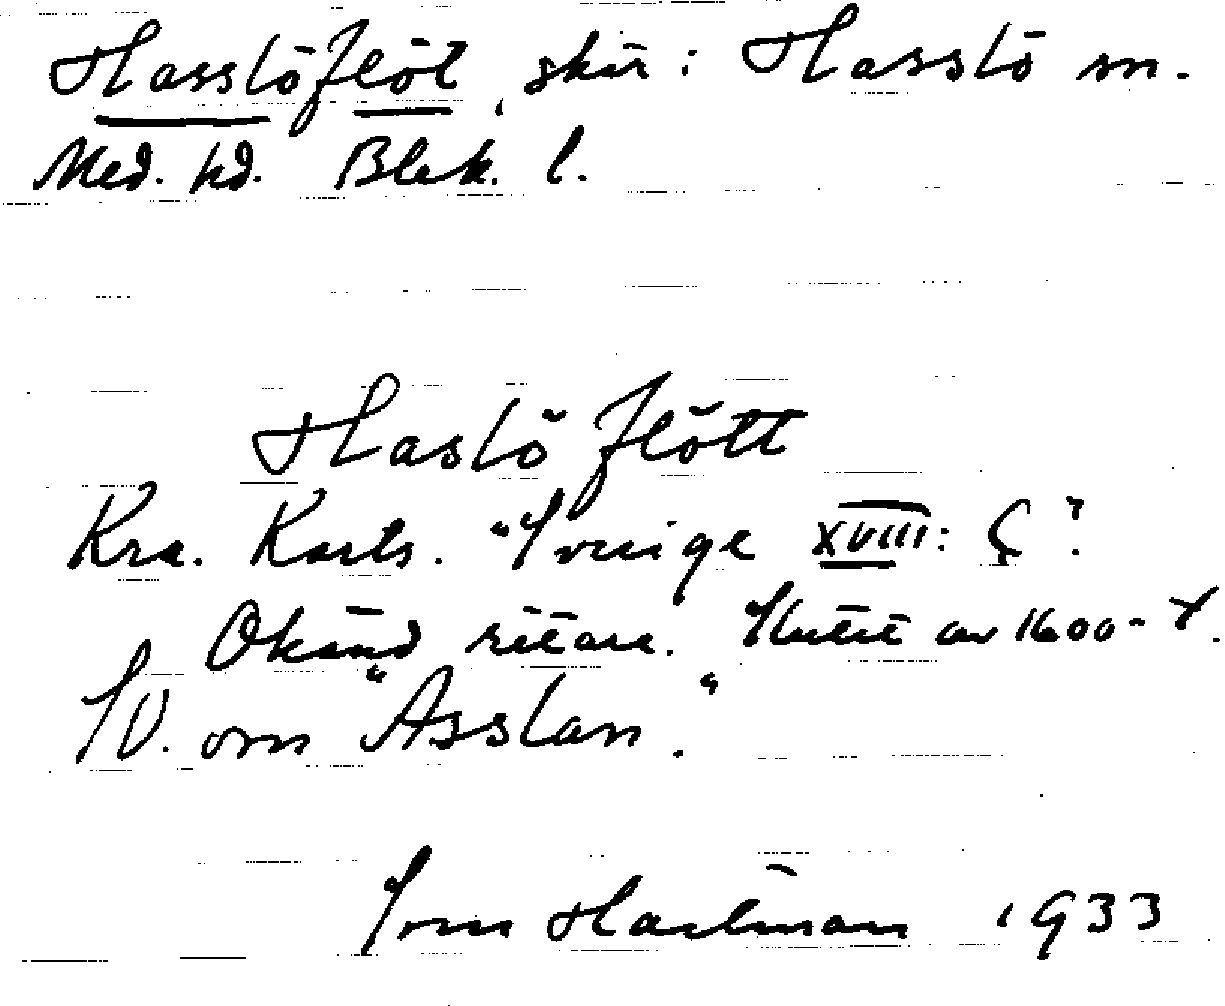 Hasslöflöt, skär: Hasslö sn.
Med. hd. Blek. l.
Haslö flött
Kra. Karts. "Sverige XVIII: Ç"?
Okänd ritare. Slutet av 1600-t.
SV. om "Asslan".
Sven Hartman 1933